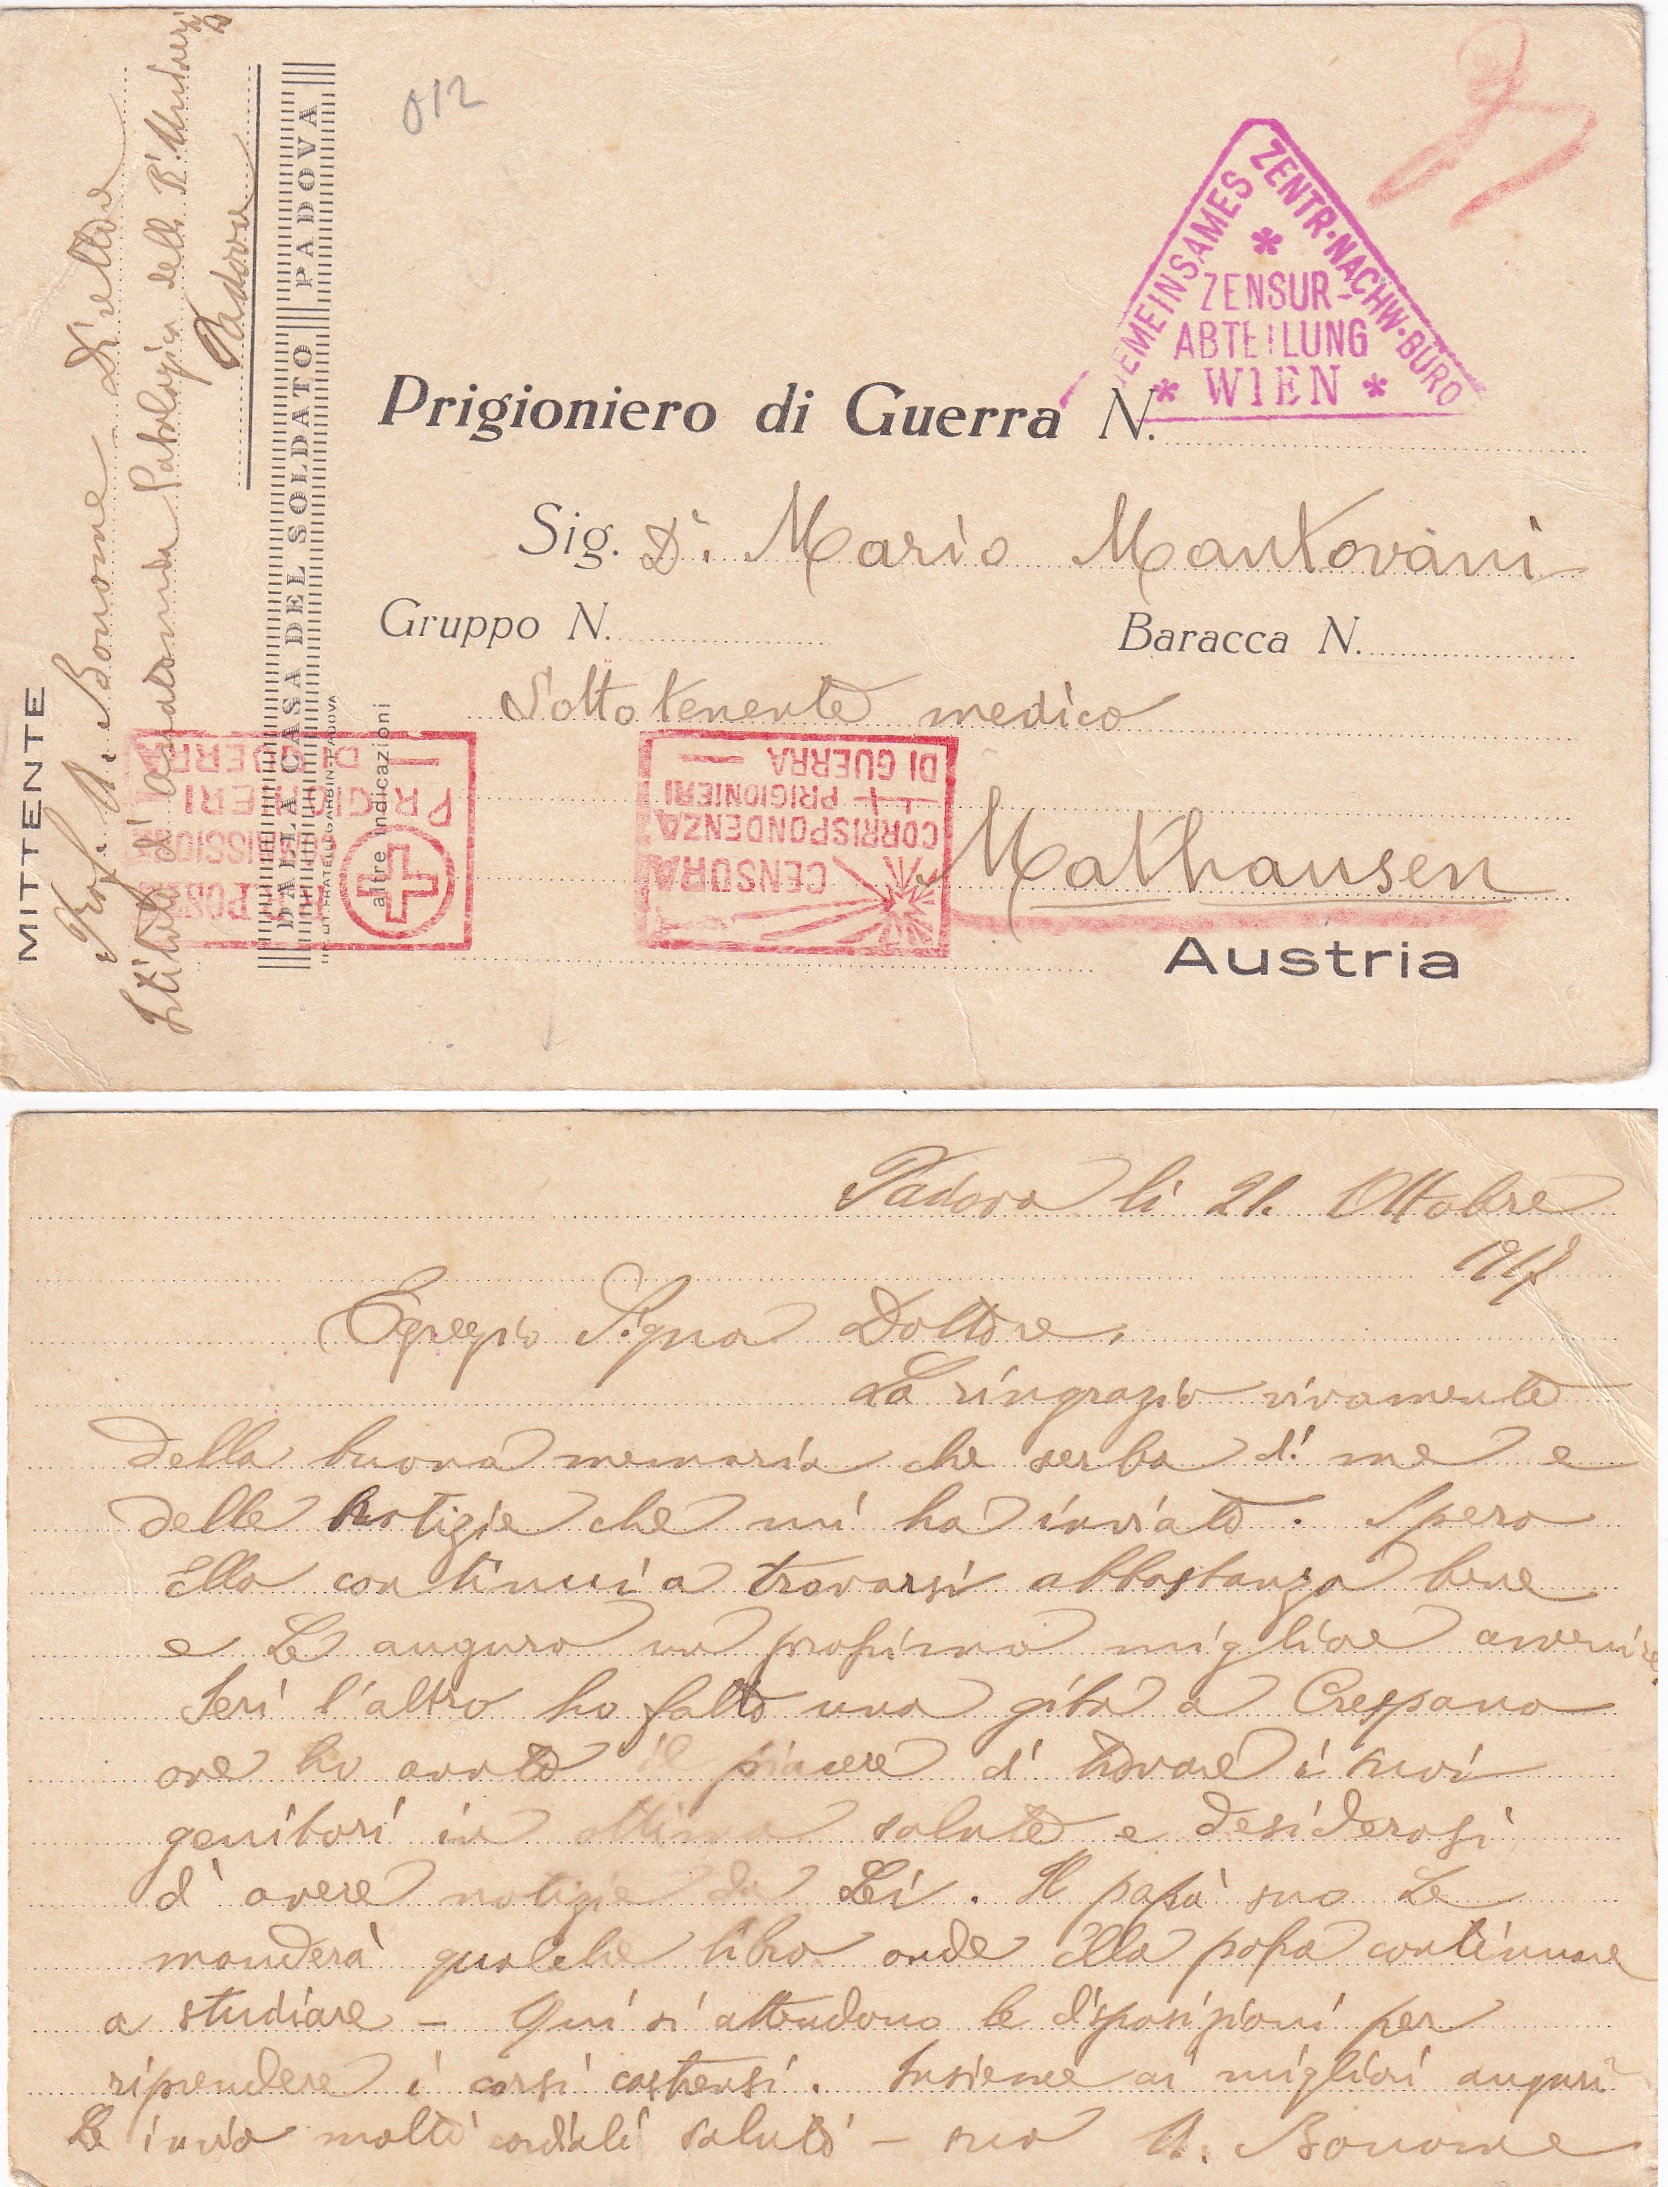 MITTENTE
Prof. A. Bonome Dir.
Istituto d'anatomia Patologica della R. Univers
Padova
DALLA CASA DEL SOLDATO PADOVA
altre indicazioni
012
GEMEINSAMES ZENTR.-NACHW.-BÜRO
ZENSUR-
ABTEILUNG
WIEN
Prigioniero di Guerra N.
Sig. Dr. Mario Mantovani
Gruppo N. Baracca N.
Sottotenente medico
Mathausen
Austria
POSTA
COMMISSIONE
PRIGIONIERI
DI GUERRA
CENSURA
CORRISPONDENZA
PRIGIONIERI
DI GUERRA
Padova li 21. Ottobre
1917
Egregio Signor Dottore,
La ringrazio vivamente
della buona memoria che serba di me e
delle notizie che mi ha inviato. Spero
Ella continui a trovarsi abbastanza bene
e Le auguro un prossimo migliore avvenire.
Ieri l'altro ho fatto una gita a Crespano
ove ho avuto il piacere di trovare i suoi
genitori in ottima salute e desiderosi
d'avere notizie da Lei. Il papà suo Le
manderà qualche libro onde Ella possa continuare
a studiare – Qui si attendono le disposizioni per
riprendere i corsi castrensi. Insieme ai migliori auguri
Le invio molti cordiali saluti – suo A. Bonome